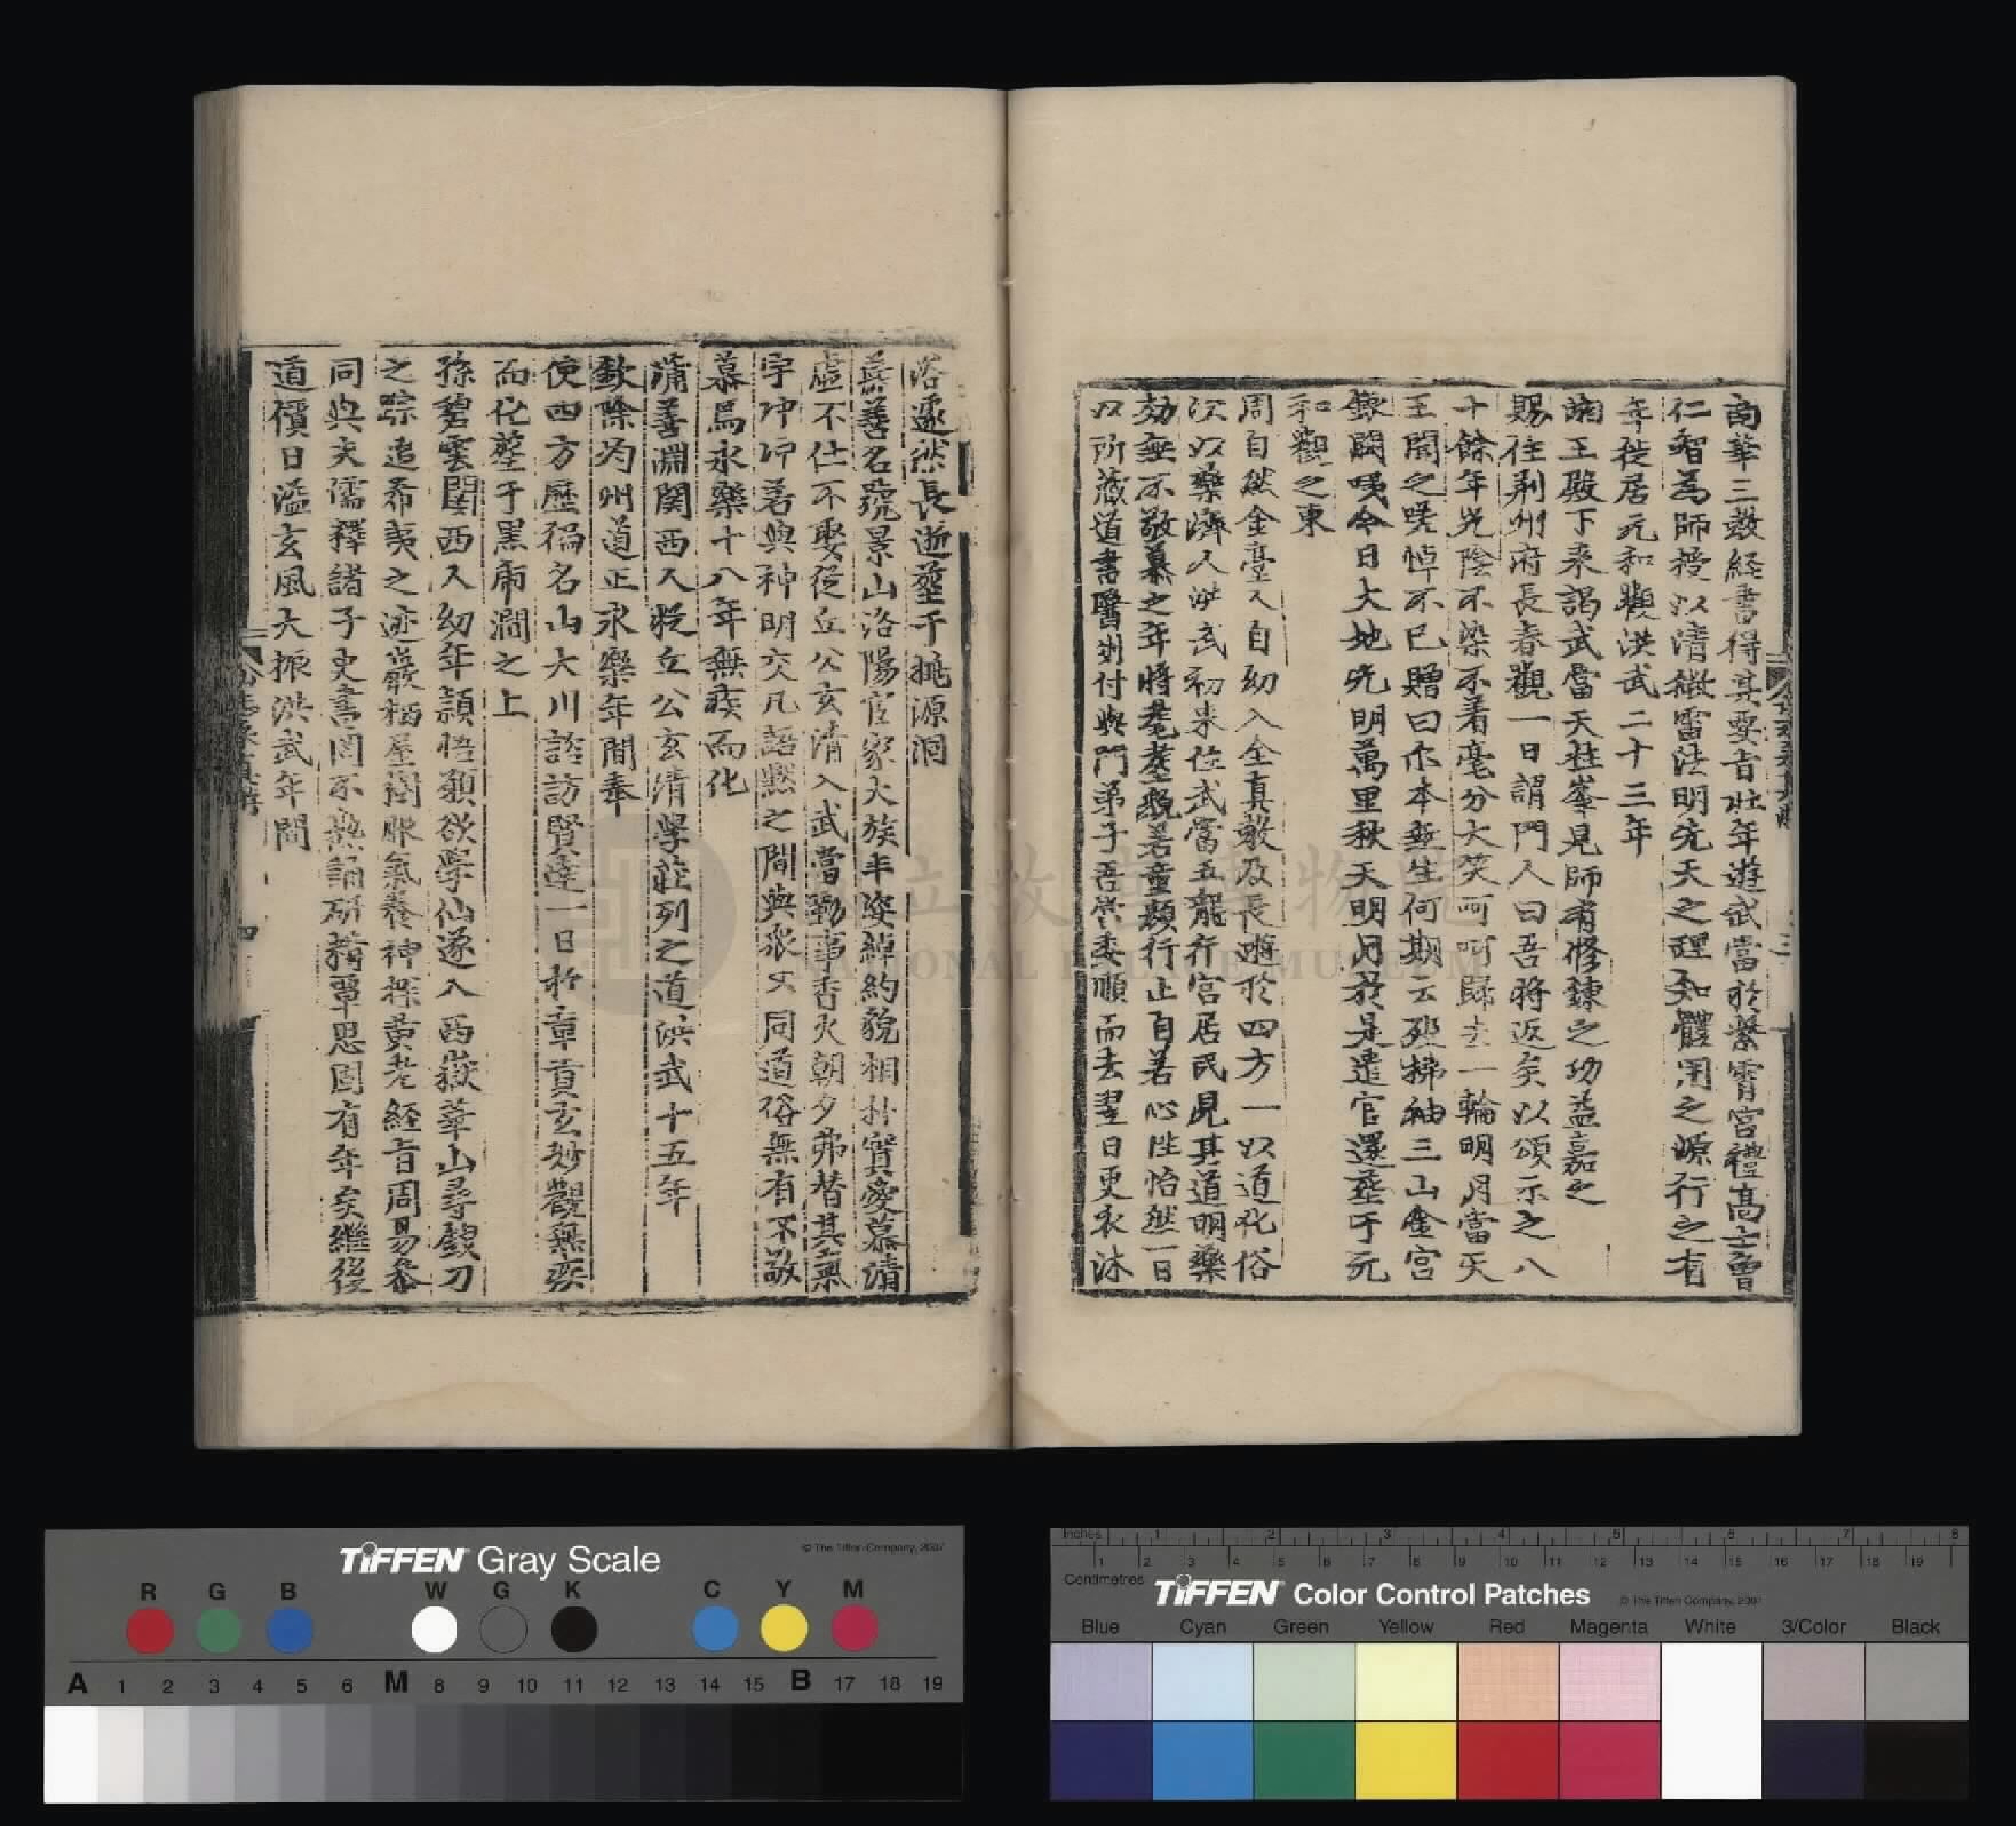 南華三教經書得其要旨壯年遊武當於紫霄宮禮高士曾
仁智為師授以清微雷法明先天之理知體用之源行之有
年徙居元和觀洪武二十三年
湘王殿下來謁武當天柱峯見師有修鍊之功益嘉之
賜住荆州府長春觀一日謂門人曰吾將返矣以頌示之八
十餘年光陰不染不着毫分大笑呵呵歸去一輪明月當天
王聞之嗟悼不已贈曰尓本無生何期云死拂袖三山金宮
銀闕咦今日大地光明萬里秋天明月於是遣官還塟于元
和觀之東
周自然金臺人自幼入全真教及長遊於四方一以道化俗
次以藥濟人洪武初來住武當五龍行宮居民見其道明藥
効無不敬慕之年將耄耋貌若童顏行止自若心性怡然一日
以所蔵道書醫劑付與門弟子吾當委順而去翌日更衣沐
浴遂然長逝塟于桃源洞
昜善名號景山洛陽官家大族丰姿綽約貌相朴實愛慕清
虛不仕不娶從丘公玄清入武當勤事香火朝夕弗替其氣
宇冲冲若與神明交凡語黙之間與衆不同道俗無有不敬
慕焉永樂十八年無疾而化
蒲善淵関西人從立公玄清學莊列之道洪武十五年
欽除均州道正永樂年間奉
使四方歷徧名山大川諮訪賢達一日於章貢玄妙觀無疾
而化塟于黑虎澗之上
孫碧雲関西人幼年頴悟願欲學仙遂入西嶽華山尋戧刀
之踪追希夷之迹巖栖屋樹服氣養神探黃老經旨周易叅
同與夫儒釋諸子史書罔不熟誦研精覃思固有年矣繼後
道價日溢玄風大振洪武年間
三
四
國立故宮博物院
NATIONAL PALACE MUSEUM
TIFFEN Gray Scale
© The Tiffen Company, 2007
R G B W G K C Y M
A 1 2 3 4 5 6 M 8 9 10 11 12 13 14 15 B 17 18 19
Inches 1 2 3 4 5 6 7 8
1 2 3 4 5 6 7 8 9 10 11 12 13 14 15 16 17 18 19
Centimetres
TIFFEN Color Control Patches
© The Tiffen Company, 2007
Blue Cyan Green Yellow Red Magenta White 3/Color Black